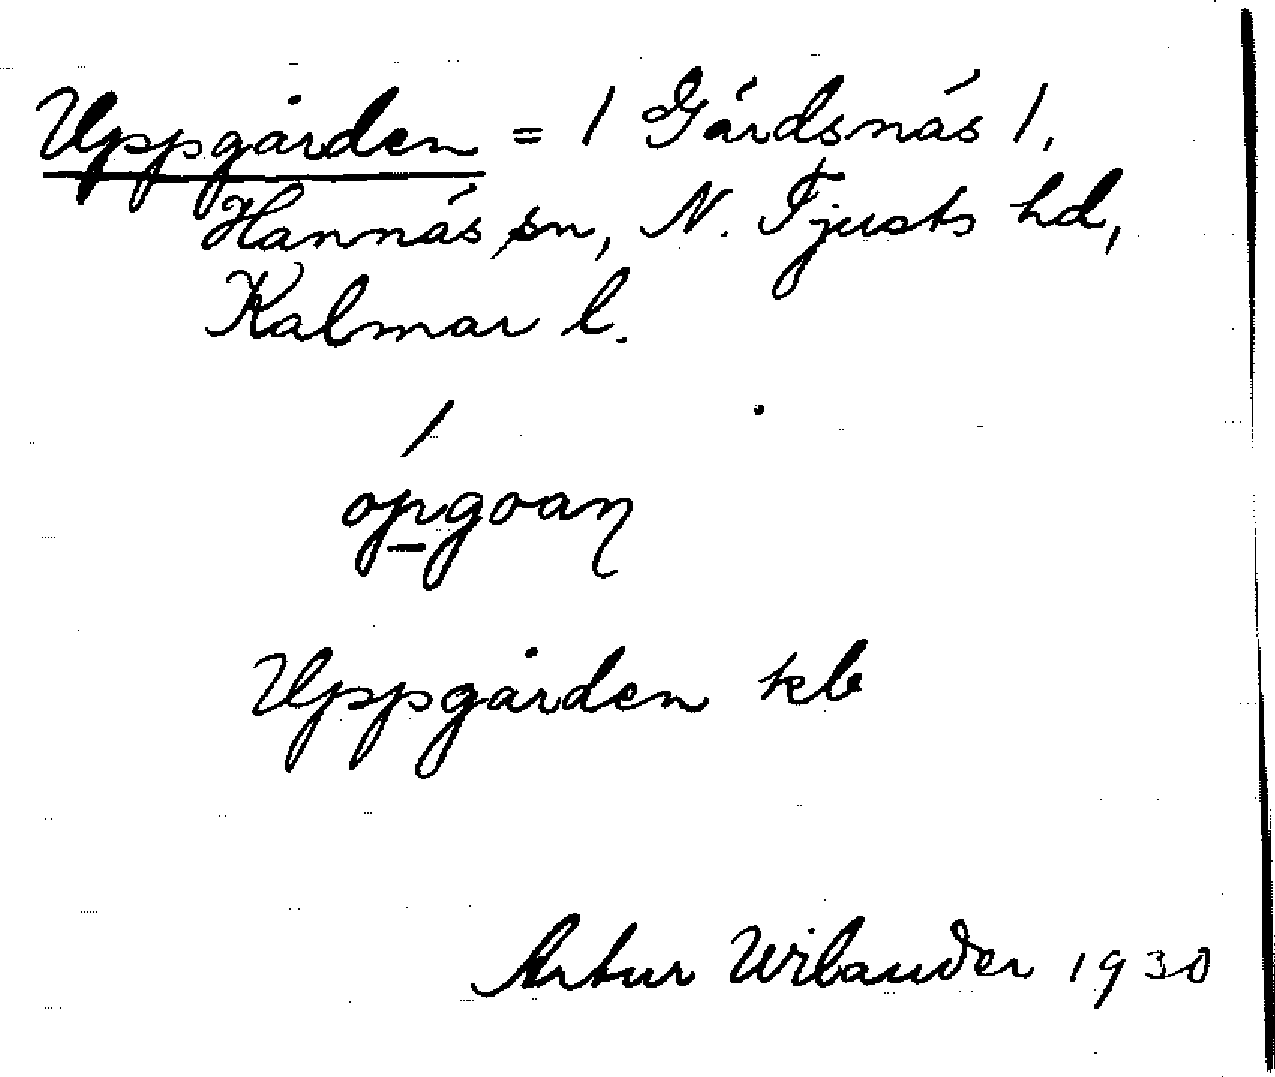 Uppgården = / Gärdsnäs /,
Hannäs sn, N. Tjusts hd,
Kalmar l.
ópgoaɳ
Uppgården kb
Artur Wilander 1930